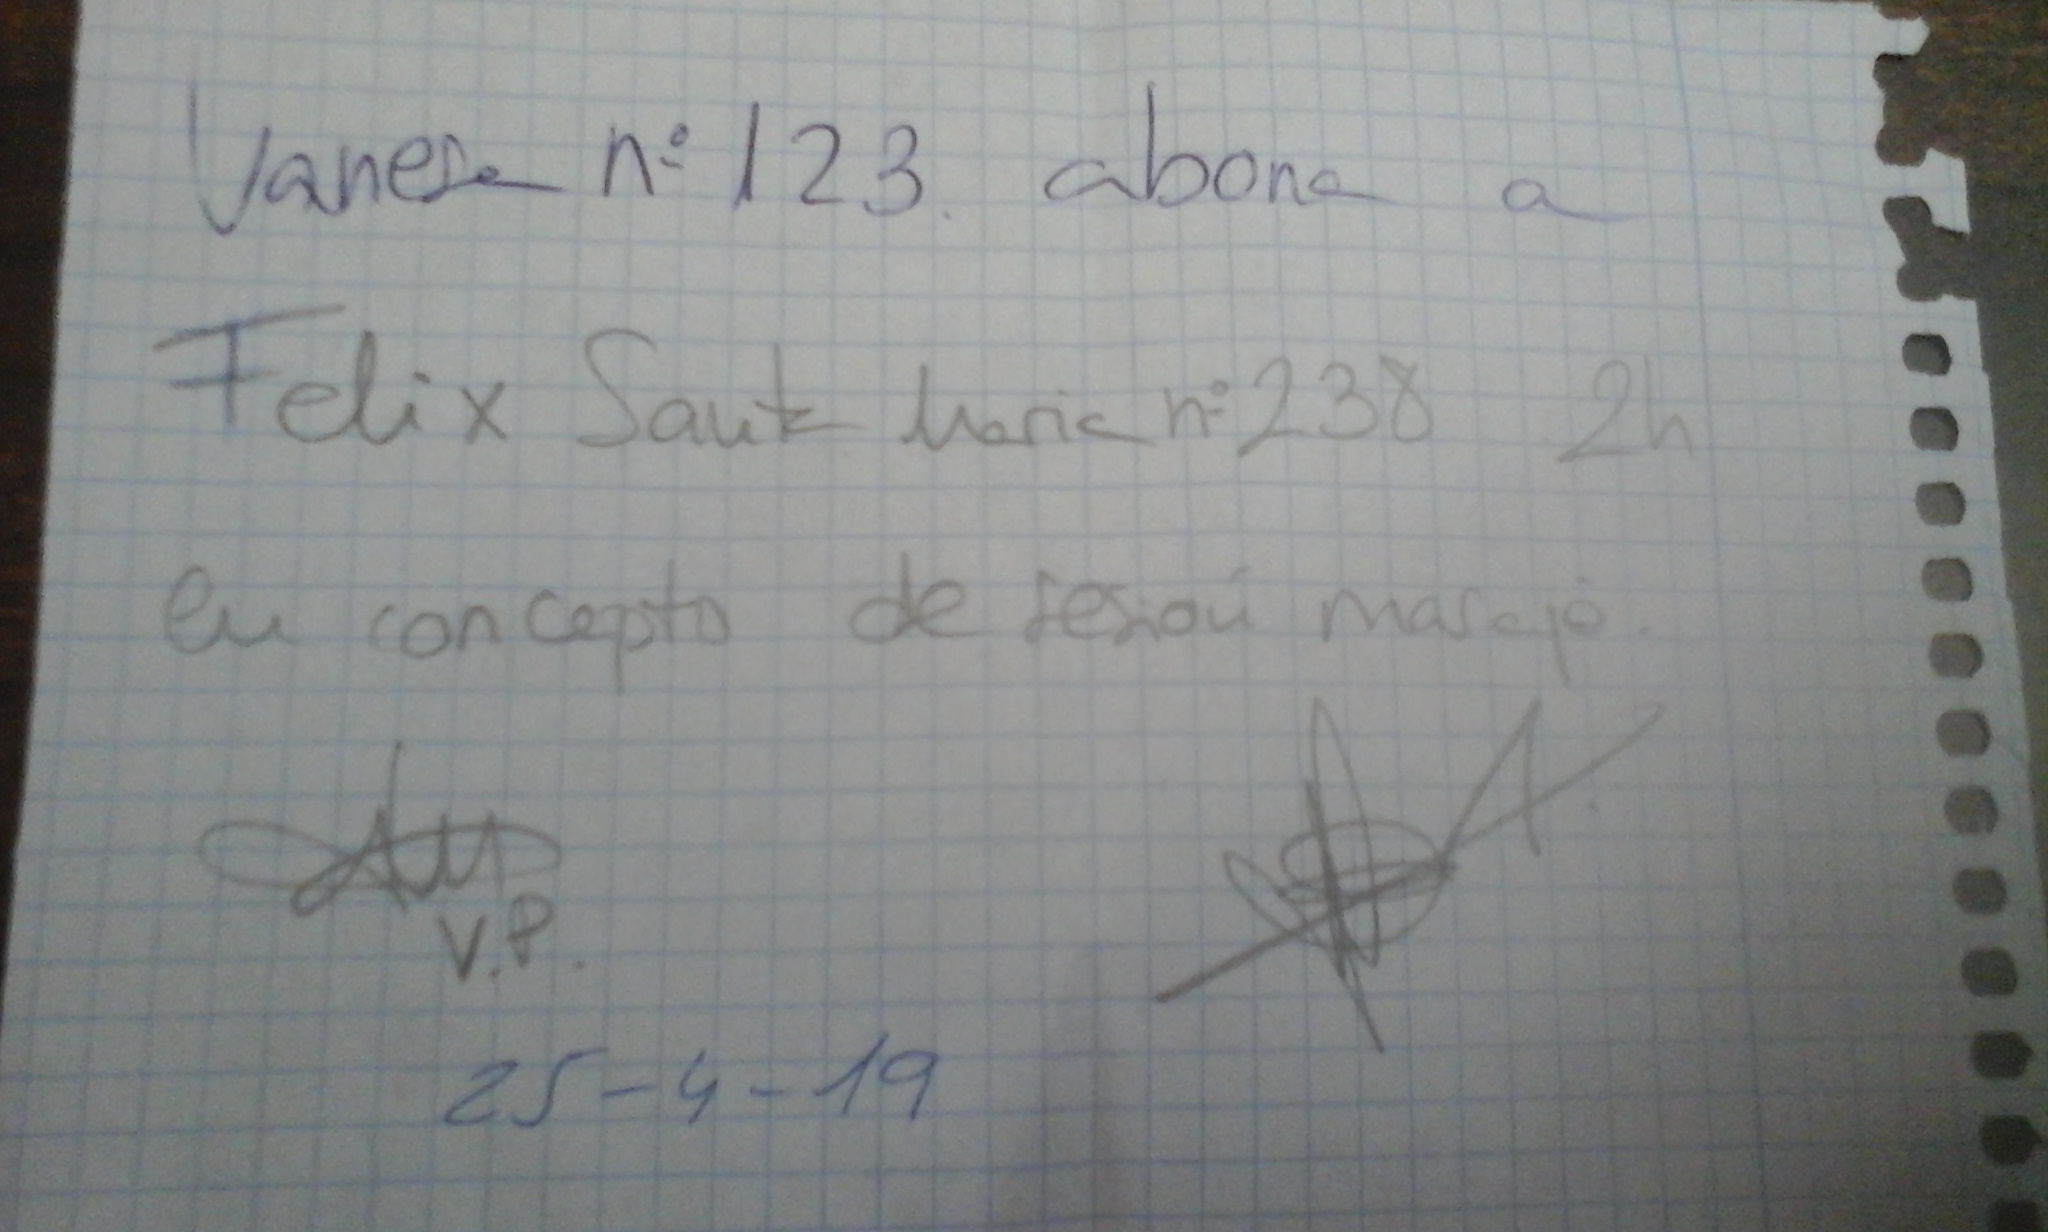 Vanesa nº 123. abona a
Felix Santa Maria nº 238 2h
en concepto de sesion masaje.
V.P.
25-4-19